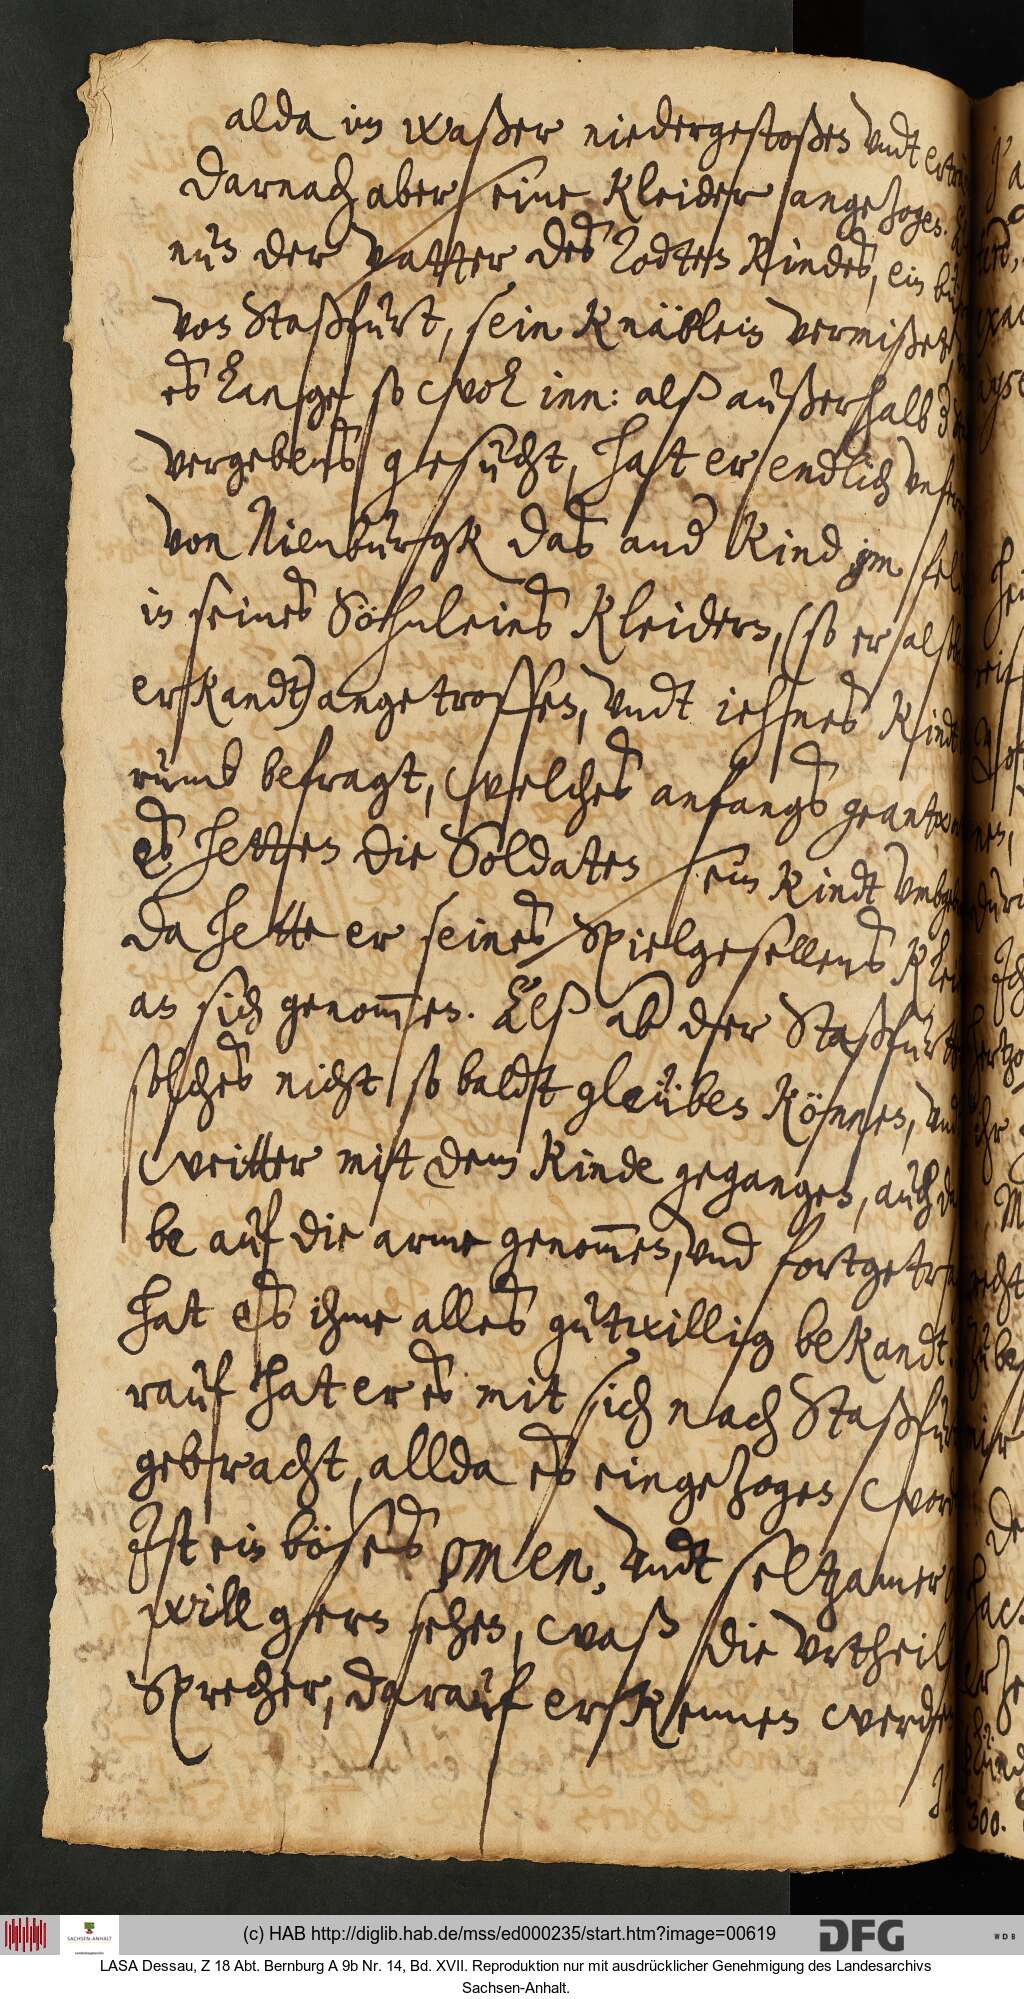 alda im waßer niedergestoßen vndt
darnach aber seine Kleider angezogen.
nun der vatter des Todten Kindes, ein
von Staßfurt, sein Knäblein vermißet,
es lange so wol inn: alß außerhalb
vergebens gesucht, hat er endlich
von Nienburgk das and Kind, im
in seines Söhnleins Kleidern, (so er
erkandt) angetroffen, vndt iehnes Kindt
rumb befragt, welches anfangs
es hetten die Soldaten sein Kindt
da hette er seines Spielgesellens
an sich genommen. Alß ab der
solches nicht so baldt gleuben können,
weitter mit dem Kinde gegangen, auch
be auf die arme genommen, vnd
hat es ihme alles gutwillig bekandt.
rauf hat er es mit sich nach
gebracht, allda es eingezogen
Ist ein böses omen, vndt seltzamer
will gern sehen, waß die vrtheil
Sprecher, darauf erkennen
300.
(c) HAB http://diglib.hab.de/mss/ed000235/start.htm?image=00619
SACHSEN-ANHALT
DFG
WDB
LASA Dessau, Z 18 Abt. Bernburg A 9b Nr. 14, Bd. XVII. Reproduktion nur mit ausdrücklicher Genehmigung des Landesarchivs
Sachsen-Anhalt.